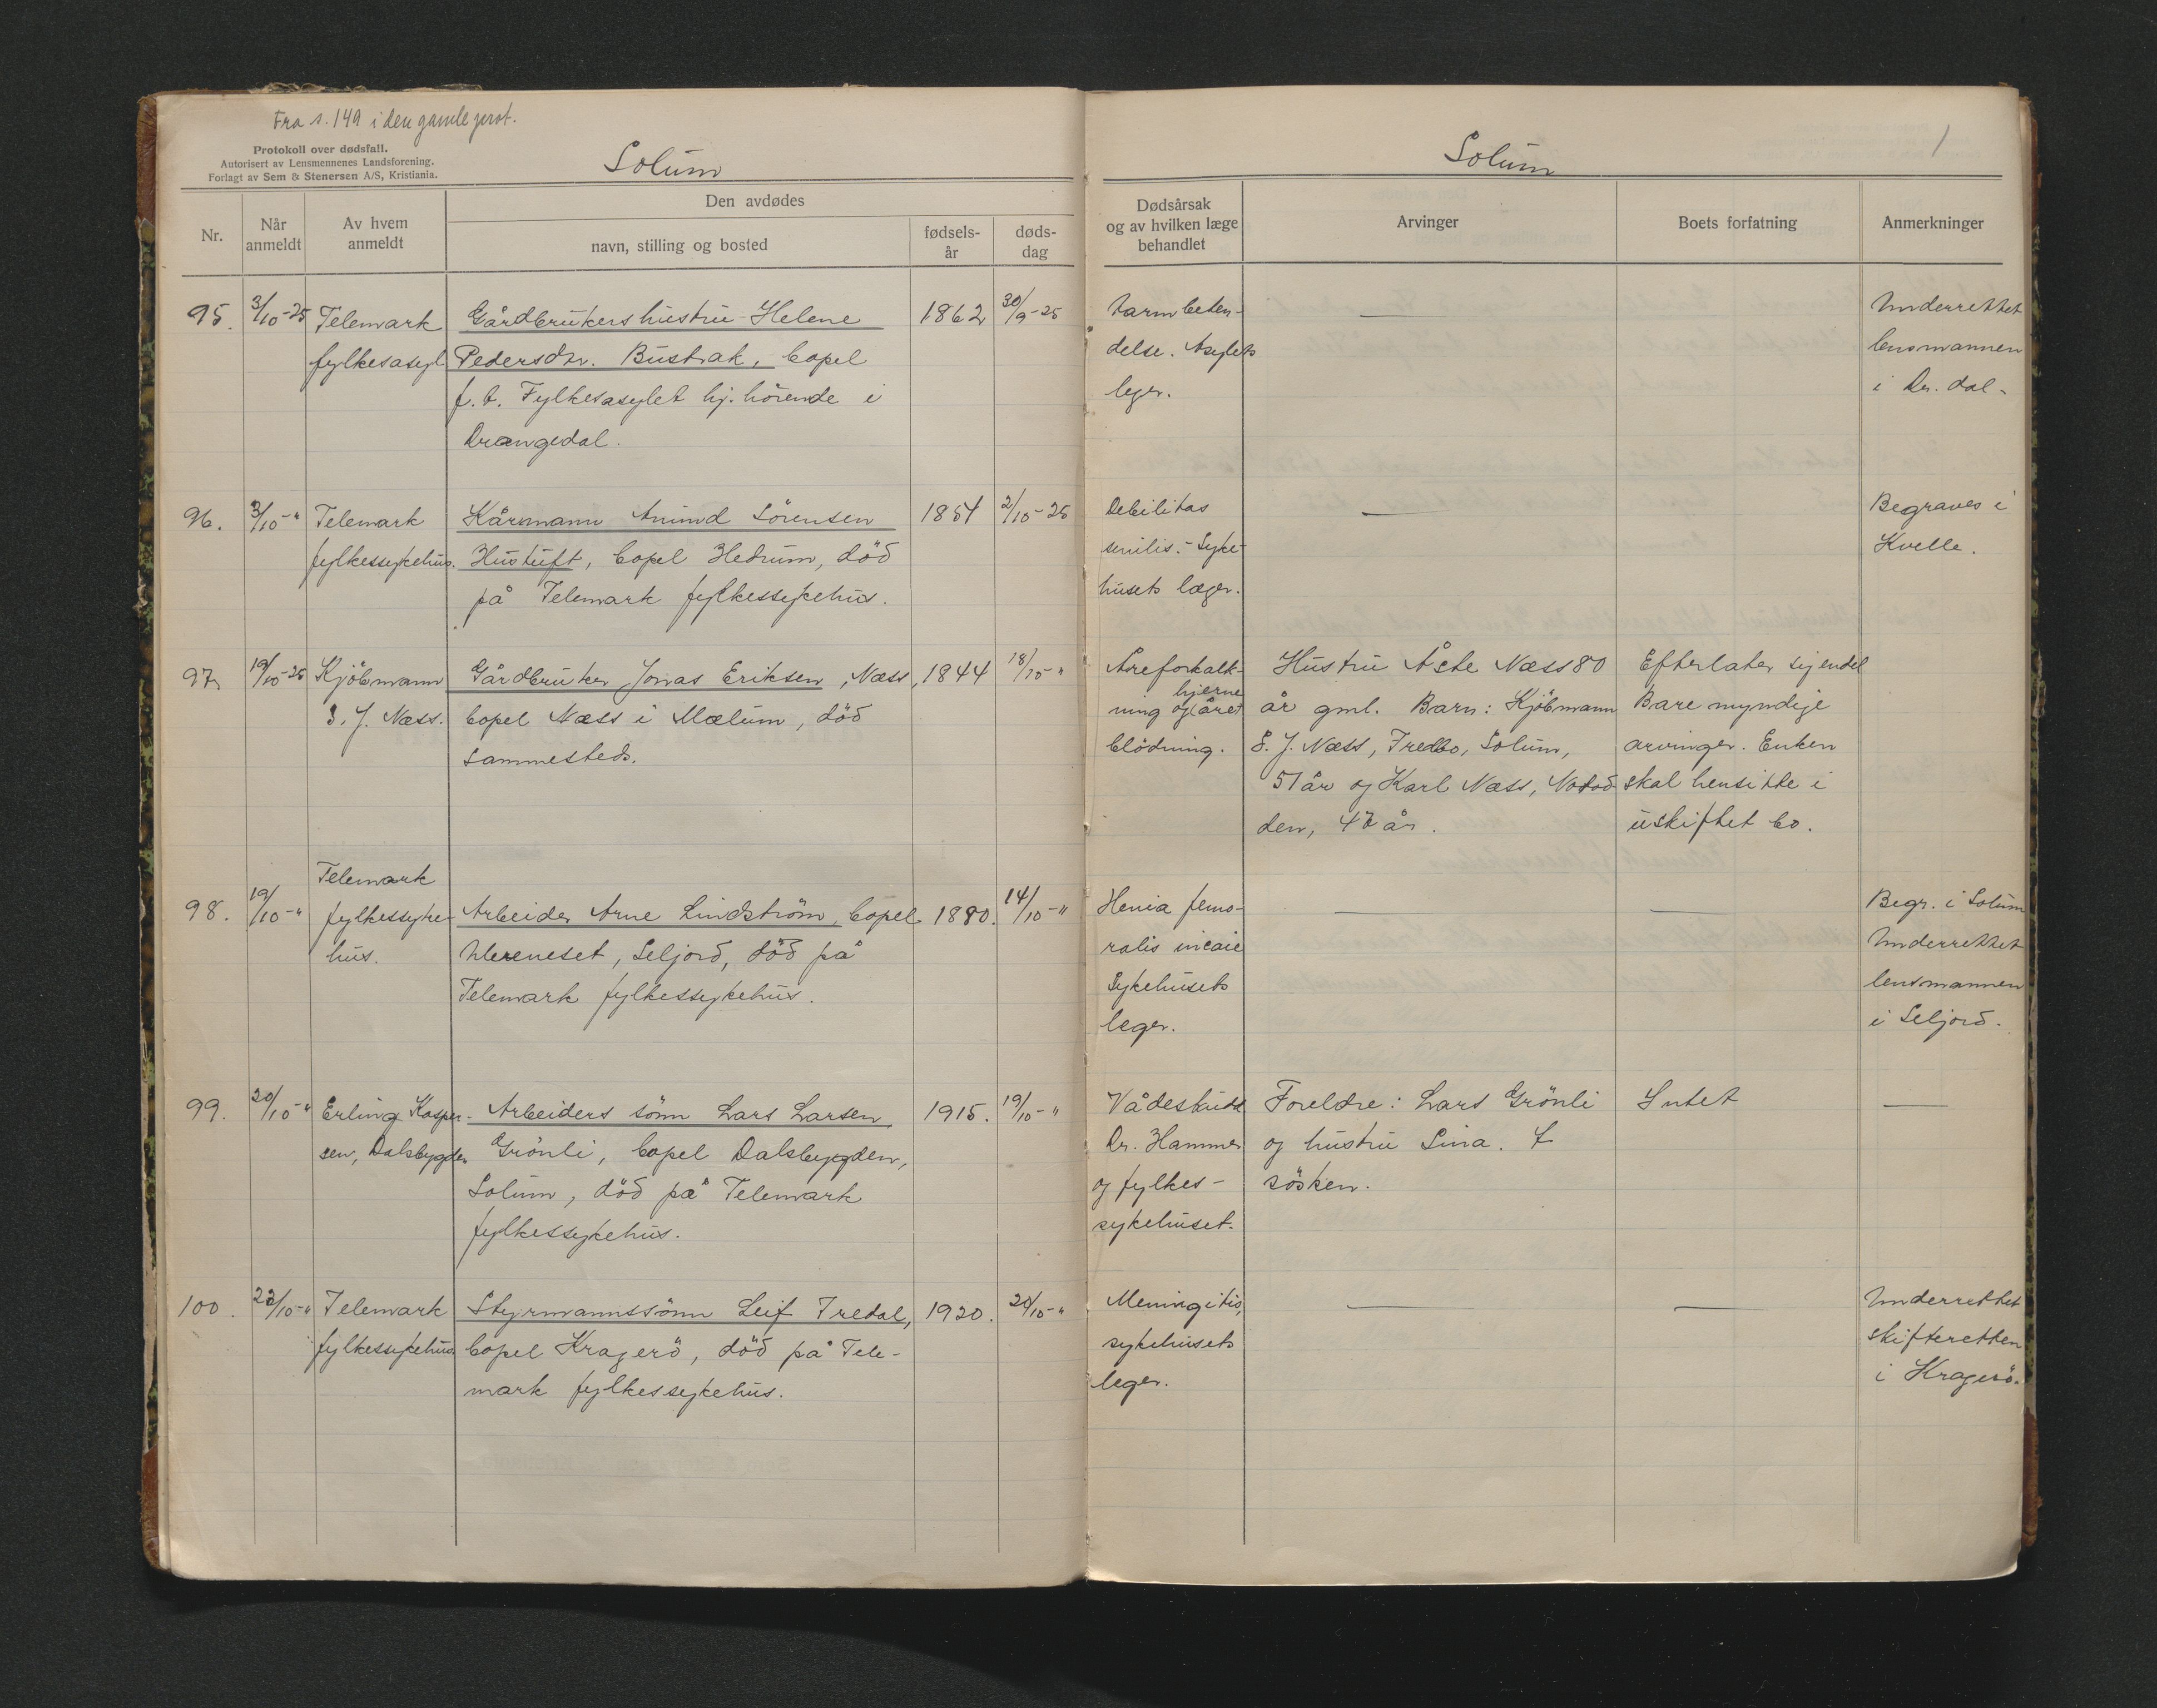 Fra s. 149 i den gamle prot.
Protokoll over dødsfall.
Autorisert av Lensmennenes Landsforening.
Forlagt av Sem & Stenersen A/S, Kristiania.
Solum
Nr.
Når anmeldt
Av hvem anmeldt
Den avdødes
navn, stilling og bosted
fødsels-år
døds-dag
95. 3/10-25 Telemark Gårdbrukers hustru Helene 1862 30/9-25
fylkesasyl Pedersdtr. Bustrak, bopel
f.t. Fylkesasylet hj. hörende i
Drangedal.
96. 3/10-" Telemark Kårmann Anund Sörensen 1854 2/10-25
fylkessykehus. Hustuft, bopel Hedrum, död
på Telemark fylkessykehus.
97. 19/10-25 Kjöbmann Gårdbruker Jonas Eriksen, Næss, 1844 18/10-"
S. J. Næss. bopel Næss i Mælum, död
sammesteds.
Telemark
98. 19/10-" fylkessyke- Arbeider Arne Lindström, bopel 1880. 14/10-"
hus. Seljord, död på
Telemark fylkessykehus.
99. 20/10-" Erling Kasper- Arbeiders sönn Lars Larsen 1915. 19/10-"
sen, Dalsbygden Grönli, bopel Dalsbygden,
Solum, död på Telemark
fylkessykehus.
100. 22/10-" Telemark Styrmannssönn Leif Tredal, 1920. 20/10-"
fylkessykehus bopel Kragerö, död på Tele-
mark fylkessykehus.
1
Solum
Dødsårsak
og av hvilken læge
behandlet
Arvinger
Boets forfatning
Anmerkninger
Tarmbeten- — Underrettet
delse. Asylets lensmannen
leger. i Dr.dal-
Debilitas — Begraves i
senilis.- Syke- Kvelle.
husets læger.
Åreforkalk- Hustru Åste Næss 80 Efterlater sig endel
hjerne
ning og året år gml. Barn: Kjöbmann Bare myndige
blödning. S. J. Næss, Fredbo, Solum, arvinger. Enken
51 år og Karl Næss, Notod- skal hensitte i
den, år. uskiftet bo.
femo- — — Begr. i Solum
ralis Underrettet
Sykehusets lensmannen
leger. i Seljord.
Vådeskudd Foreldre: Lars Grönli Intet —
Dr. Hammer og hustru Lina. 7
og fylkes- sösken.
sykehuset.
Meningitis, — — Underrettet
sykehusets skifteretten
leger. i Kragerö.